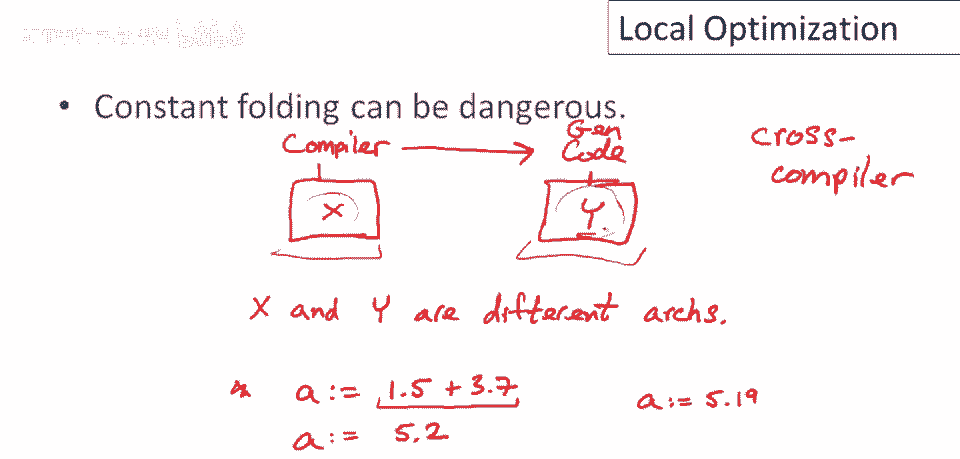 Local Optimization
• Constant folding can be dangerous.
Compiler
Gen
Code
cross-
compiler
X
Y
X and Y are different archs.
a := 1.5 + 3.7
a := 5.19
a := 5.2